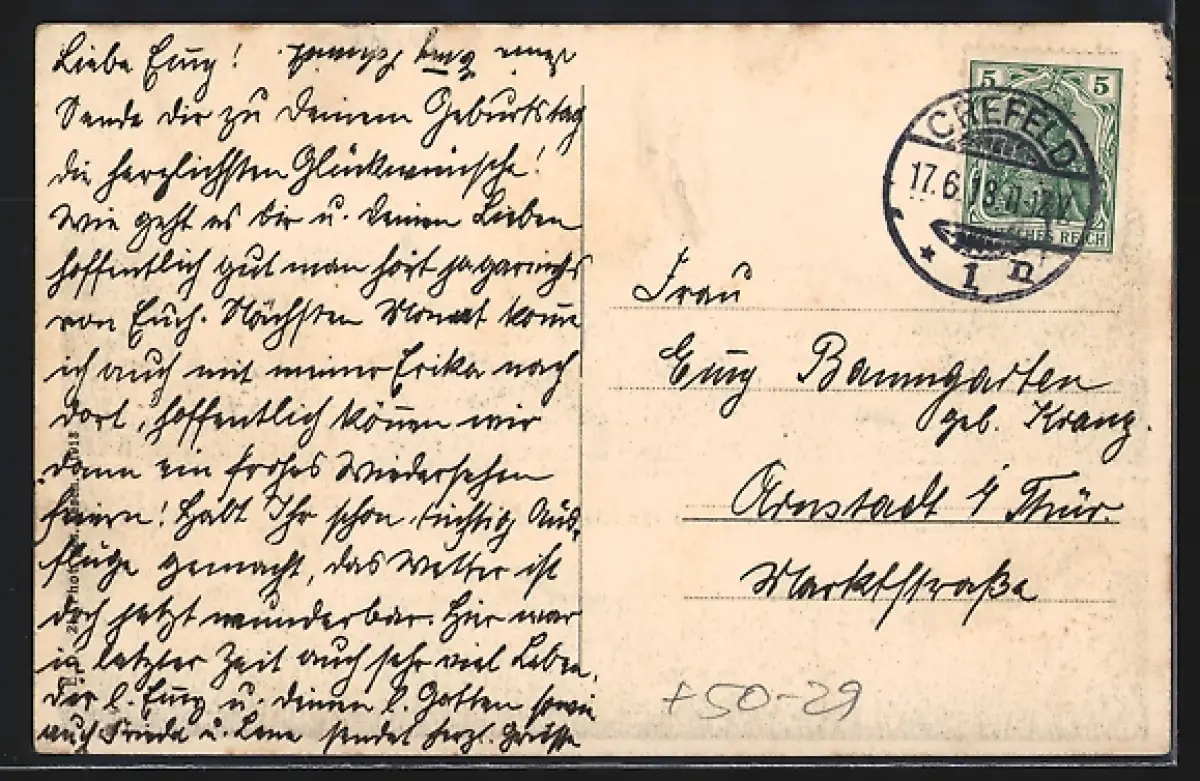 Liebe Emy!
Sende dir zu Deinem Geburtstag
die herzlichsten Glückwünsche!
Wie geht es dir u. Deinen Lieben
hoffentlich gut man hört ja garnichts
von Euch. Nächsten Monat kom̅e
ich auch mit meiner Erika nach
dort, hoffentlich kön̅en wir
dann ein frohes Wiedersehen
feiern! Habt Ihr schon tüchtig Aus-
flüge gemacht, das Wetter ist
doch jetzt wunderbar. Hier war
in letzter Zeit auch sehr viel Leben.
Dir l. Emy u. deinem l. Gatten sowie
auch Frieda u. Lene sendet herzl. Grüsse
5 5
DEUTSCHES REICH
CREFELD
17.6.13.11-12V
* 1 n
Frau
Emy Baumgarten
geb. Kranz.
Arnstadt i/Thür.
Marktstraße
+50-29
1913